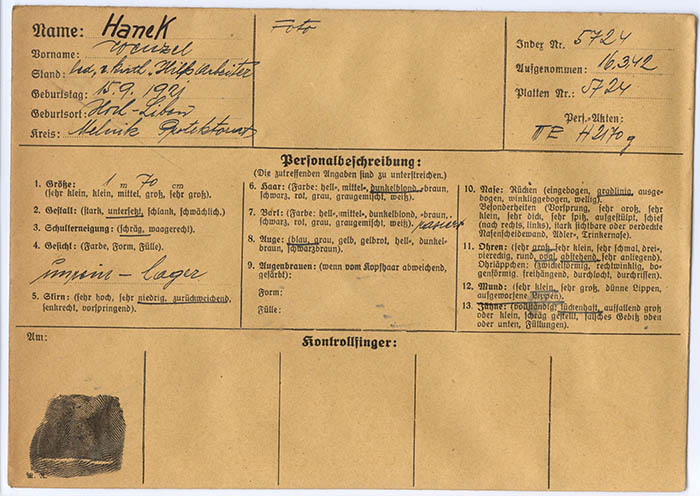 Name: Hanek
Vorname: Wenzel
Stand: led., Hilfsarbeiter
Geburtstag: 15.9.1921
Geburtsort:
Kreis: Melnik Protektorat
Foto
Index Nr. 5724
Aufgenommen: 16.3.42
Platten Nr.: 5724
Pers.-Akten:
H 2170
Personalbeschreibung:
(Die zutreffenden Angaben sind zu unterstreichen.)
1. Größe: 1 m 70 cm
(sehr klein, klein, mittel, groß, sehr groß).
2. Gestalt: (stark, untersetzt, schlank, schwächlich).
3. Schulterneigung: (schräg, waagerecht).
4. Gesicht: (Farbe, Form, Fülle).
hager
5. Stirn: (sehr hoch, sehr niedrig, zurückweichend,
senkrecht, vorspringend).
6. Haar: (Farbe: hell-, mittel-, dunkelblond, -braun,
schwarz, rot, grau, graugemischt, weiß).
7. Bart: (Farbe: hell-, mittel-, dunkelblond, -braun,
schwarz, rot, grau, graugemischt, weiß). rasiert
8. Auge: (blau, grau, gelb, gelbrot, hell-, dunkel-
braun, schwarzbraun).
9. Augenbrauen: (wenn vom Kopfhaar abweichend,
gefärbt):
Form:
Fülle:
10. Nase: Rücken (eingebogen, gradlinig, ausge-
bogen, winkliggebogen, wellig).
Besonderheiten (Vorsprung, sehr groß, sehr
klein, sehr dick, sehr spitz, aufgestülpt, schief
(nach rechts, links), stark sichtbare oder verdeckte
Nasenscheidewand, Adler-, Trinkernase).
11. Ohren: (sehr groß, sehr klein, sehr schmal, drei-,
viereckig, rund, oval, abstehend, sehr anliegend).
Ohrläppchen: (zwickelförmig, rechtwinklig, bo-
genförmig, freihängend, durchlocht, durchrissen).
12. Mund: (sehr klein, sehr groß, dünne Lippen,
aufgeworfene Lippen).
13. Zähne: (vollständig, lückenhaft, auffallend groß
oder klein, schräg gestellt, falsches Gebiß oben
oder unten, Füllungen).
Am:
Kontrollfinger: